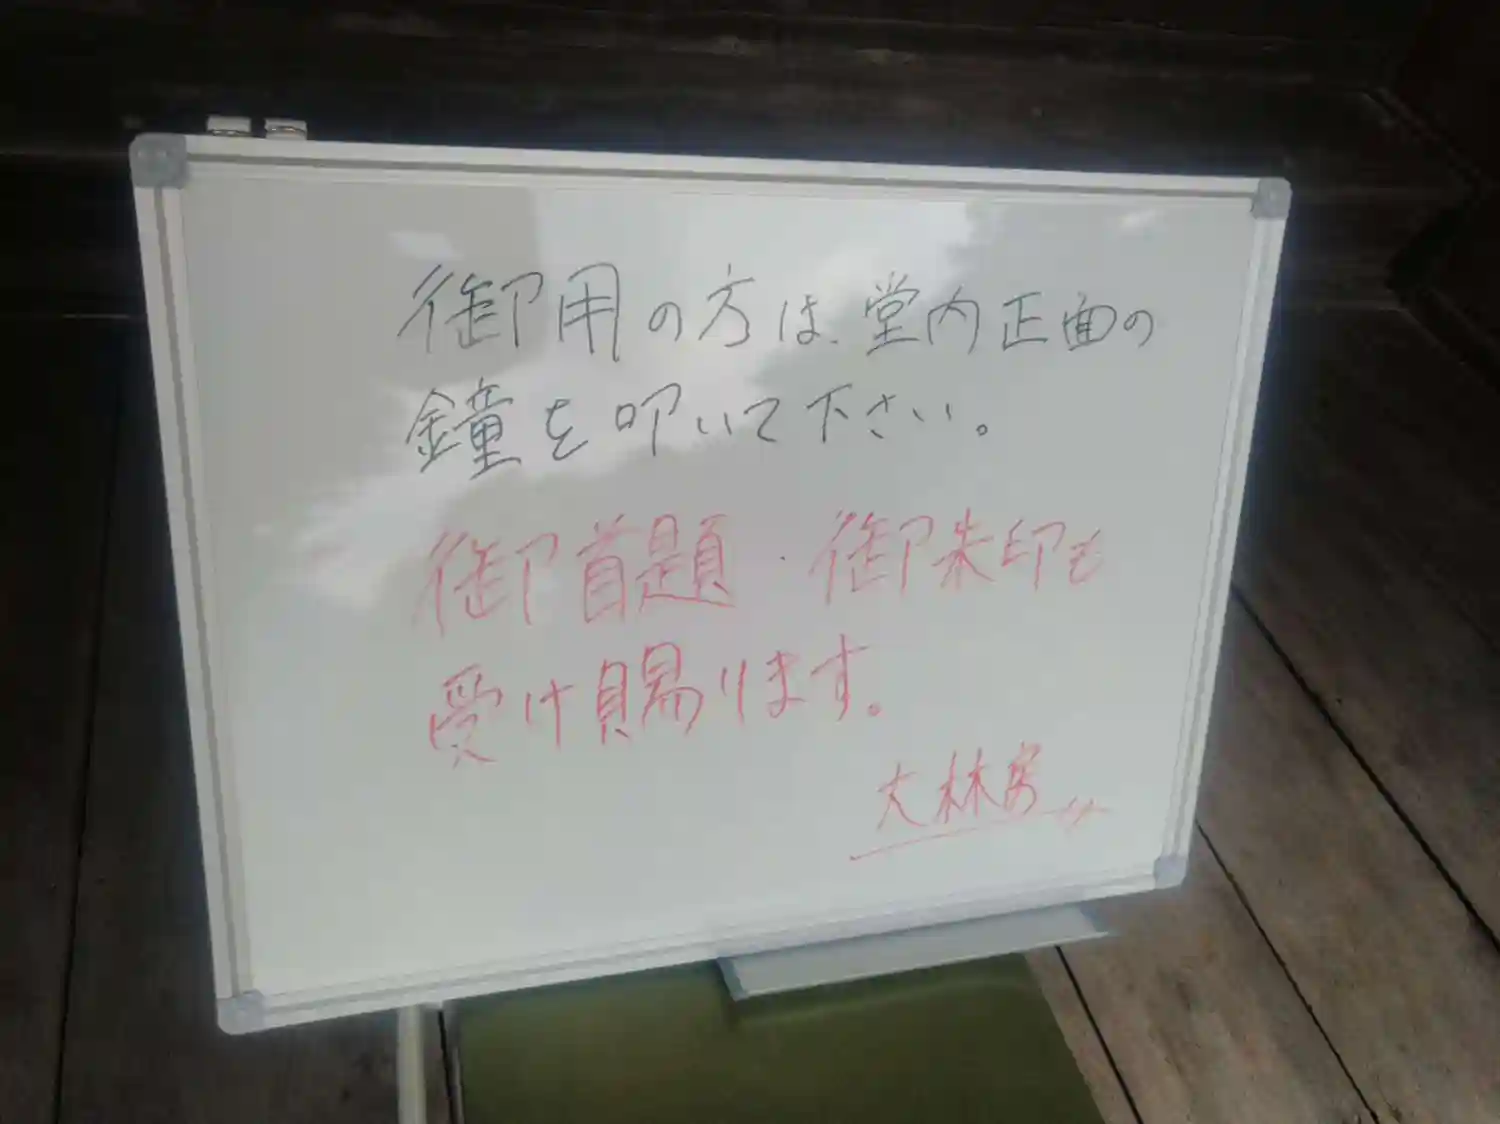 御用の方は、堂内正面の
鐘を叩いて下さい。
御首題・御朱印も
受け賜ります。
大林房